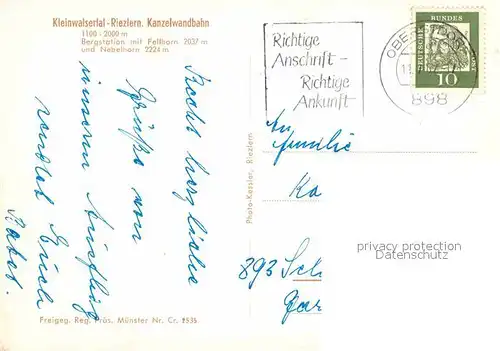 Kleinwalsertal - Riezlern. Kanzelwandbahn
1100 - 2000 m
Bergstation mit Fellhorn 2037 m
und Nebelhorn 2224 m
Recht herzliche
Grüße von
unserem Ausflug
sendet Euch
Richtige
Anschrift -
Richtige
Ankunft
DEUTSCHE BUNDES
10
898
An
Familie
Ka
893 Sch
Photo-Kessler, Riezlern
privacy protection
Datenschutz
Freigeg. Reg. Präs. Münster Nr. Cr. 2535